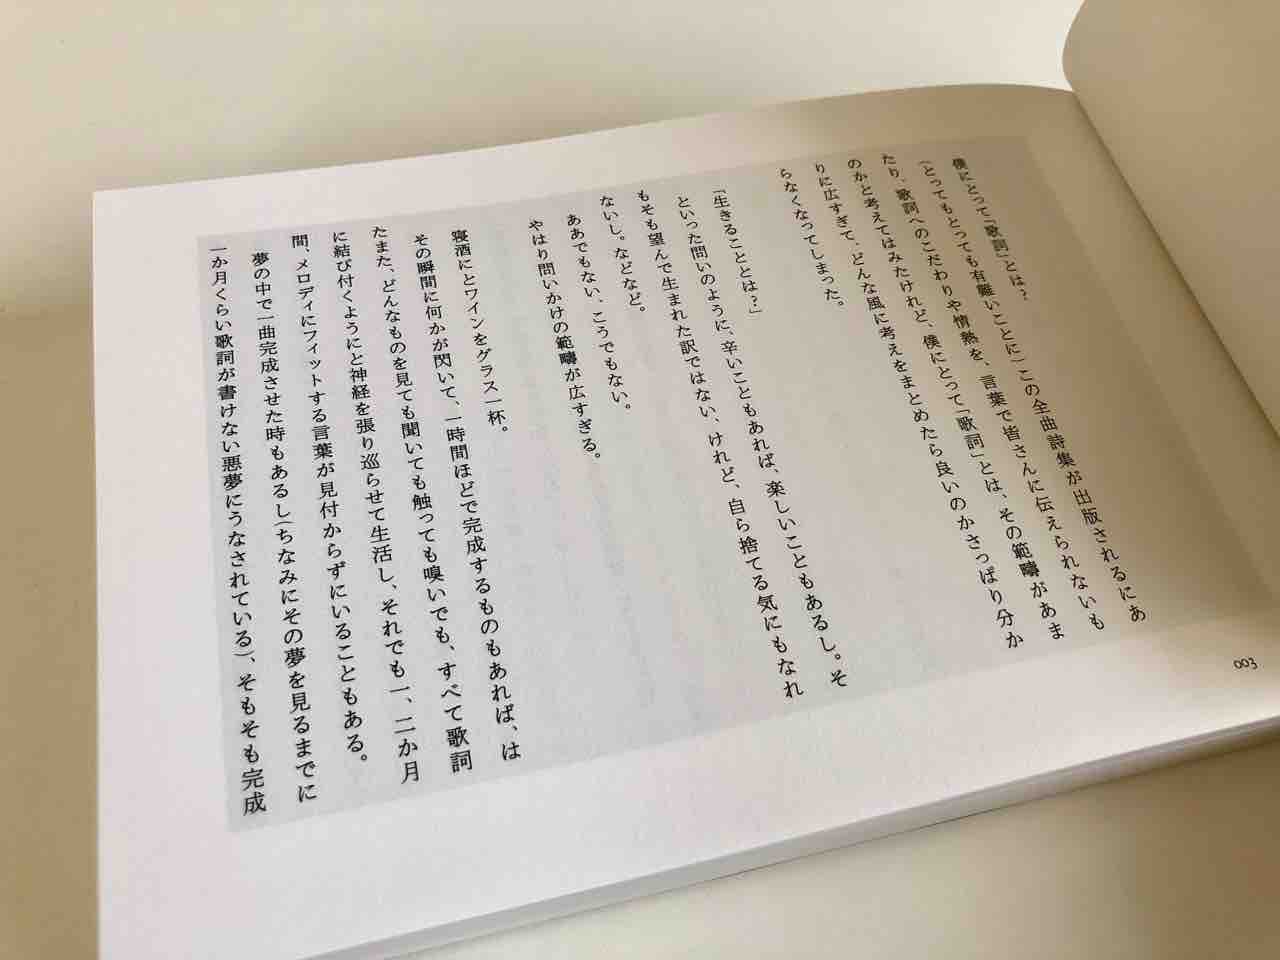 僕にとって「歌詞」とは？
（とってもとっても有難いことに）この全曲詩集が出版されるにあ
たり、歌詞へのこだわりや情熱を、言葉で皆さんに伝えられないも
のかと考えてはみたけれど、僕にとって「歌詞」とは、その範疇があま
りに広すぎて、どんな風に考えをまとめたら良いのかさっぱり分か
らなくなってしまった。
「生きることとは？」
といった問いのように、辛いこともあれば、楽しいこともあるし。そ
もそも望んで生まれた訳ではない、けれど、自ら捨てる気にもなれ
ないし。などなど。
ああでもない、こうでもない。
やはり問いかけの範疇が広すぎる。
寝酒にとワインをグラス一杯。
その瞬間に何かが閃いて、一時間ほどで完成するものもあれば、は
たまた、どんなものを見ても聞いても触っても嗅いでも、すべて歌詞
に結び付くようにと神経を張り巡らせて生活し、それでも一、二か月
間、メロディにフィットする言葉が見付からずにいることもある。
夢の中で一曲完成させた時もあるし（ちなみにその夢を見るまでに
一か月くらい歌詞が書けない悪夢にうなされている）、そもそも完成
003